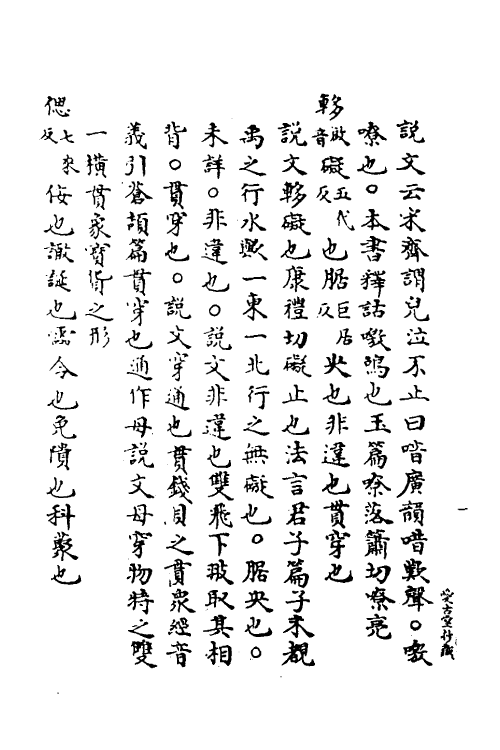 說文云宋齊謂兒泣不止曰喑廣韻喑歎聲。噭
嘹也。本書釋詁噭鳴也玉篇嘹落簫切嘹亮
軫啟音礙五代反也腒巨居反央也非違也貫穿也
說文軫礙也康禮切礙止也法言君子篇子未覩
禹之行水與一東一北行之無礙也。腒央也。
未詳。非違也。說文非違也雙飛下翄取其相
背。貫穿也。說文穿通也貫錢貝之貫衆經音
義引蒼頡篇貫穿也通作毌說文毌穿物持之雙
一橫貫象寶貨之形
偲七來反佞也譀誕也 令也免隤也科藂也
愛古堂抄藏
一